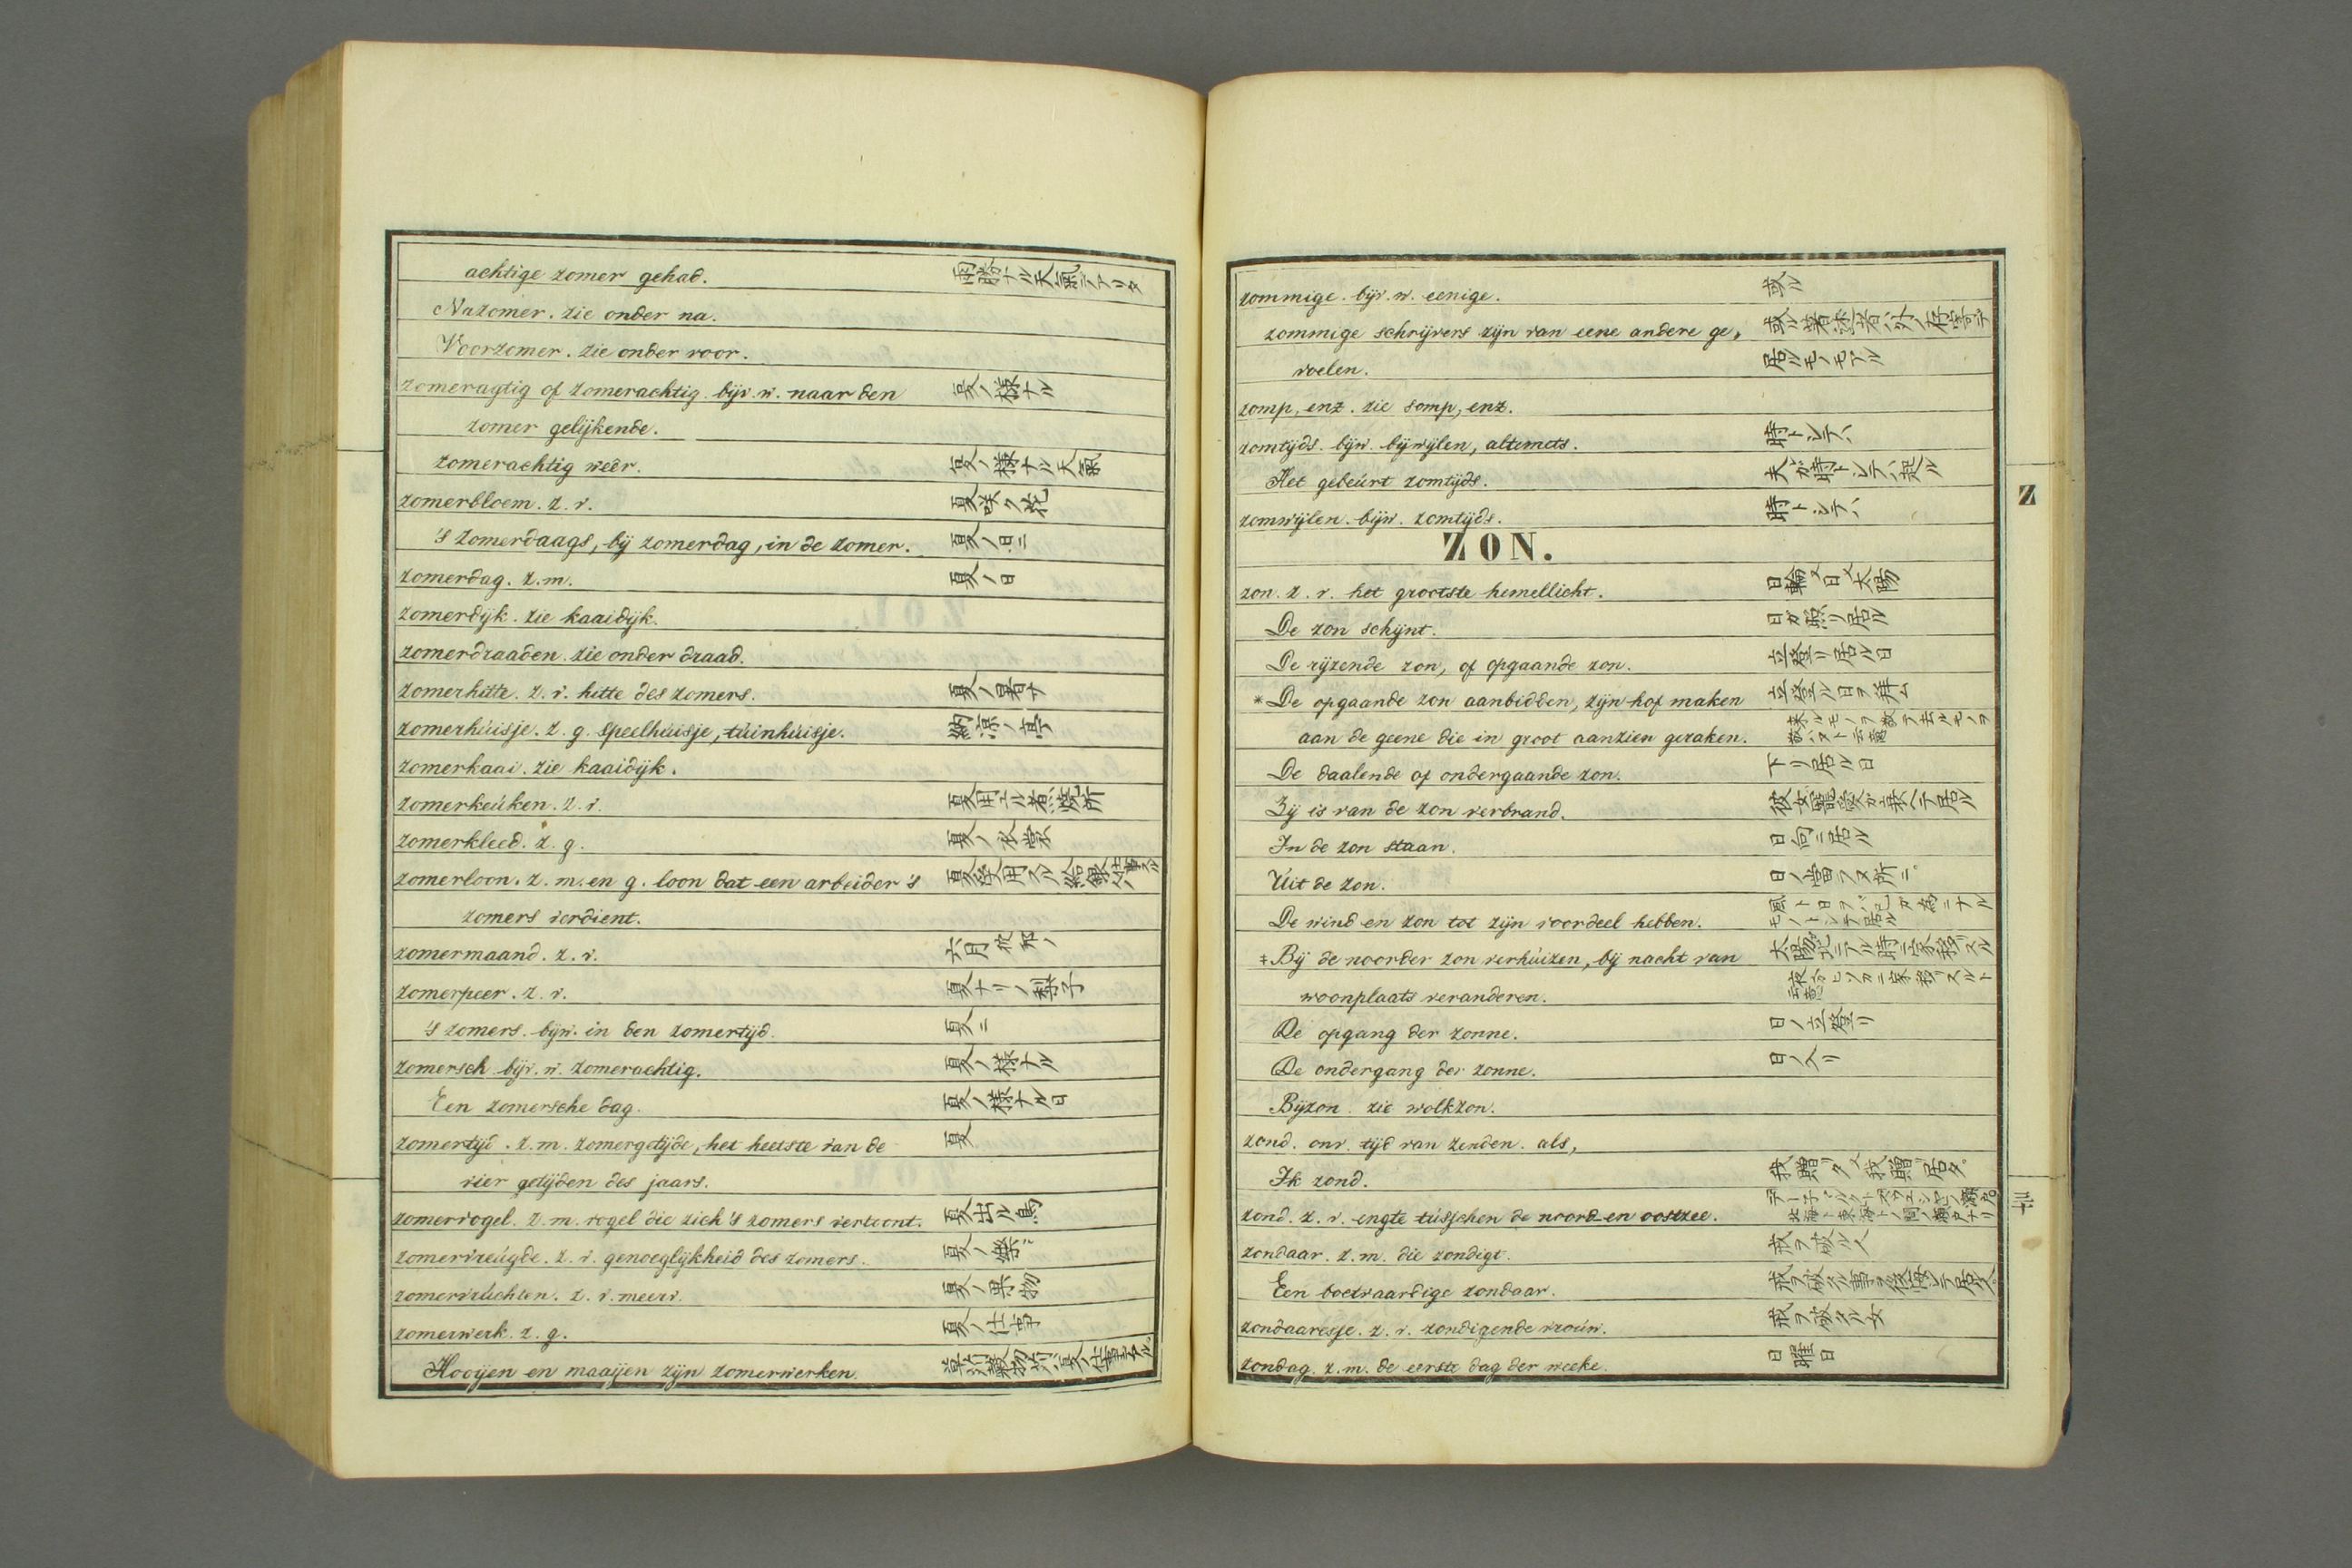 achtige zomer gehad.
Nazomer. zie onder na.
Voorzomer. zie onder voor.
zomeragtig of zomerachtig. bijv. w. naar den 夏ノ様ナル
zomer gelijkende.
zomerachtig weêr. 夏ノ様ナル天氣
zomerbloem. z. v. 夏咲ク花
's zomerdaags, bij zomerdag, in de zomer. 夏ノ日ニ
zomerdag. z. m. 夏ノ日
zomerdijk. zie kaaidijk.
zomerdraaden. zie onder draad.
zomerhitte. z. v. hitte des zomers. 夏ノ暑サ
zomerhúisje. z. g. speelhúisje, túinhúisje. 納涼ノ亭
zomerkaai. zie kaaidijk.
zomerkeúken. z. v. 夏用ユル煮焼所
zomerkleed. z. g. 夏ノ衣裳
zomerloon. z. m. en g. loon dat een arbeider 's
zomers verdient.
zomermaand. z. v. 六月
zomerpeer. z. v. 夏ナリノ梨子
's zomers. bijw. in den zomertijd. 夏ニ
zomersch. bijv. w. zomerachtig. 夏ノ様ナル
Een zomersche dag. 夏ノ様ナル日
zomertijd. z. m. zomergetijde, het heetste van de 夏
vier getijden des jaars.
zomervogel. z. m. vogel die zich 's zomers vertoont. 夏出ル鳥
zomervreúgde. z. v. genoeglijkheid des zomers. 夏ノ樂ミ
zomervrúchten. z. v. meerv. 夏ノ果物
zomerwerk. z. g. 夏ノ仕事
Hooijen en maaijen zijn zomerwerken.
zommige. bijv. w. eenige. 或ル
zommige schrijvers zijn van eene andere ge,
voelen. 居ルモノモアル
zomp, enz. zie somp, enz.
zomtijds. bijw. bijwijlen, altemets. 時トシテハ
Het gebeúrt zomtijds. 夫ガ時トシテハ起ル
zomwijlen. bijw. zomtijds. 時トシテハ
ZON.
zon. z. v. het grootste hemellicht. 日輪又日又太陽
De zon schijnt. 日ガ照リ居ル
De rijzende zon, of opgaande zon. 立登リ居ル日
* De opgaande zon aanbidden, zijn hof maken 立登ル日ヲ拝ム
aan de geene die in groot aanzien geraken.
De daalende of ondergaande zon. 下リ居ル日
Zij is van de zon verbrand.
In de zon staan. 日向ニ居ル
Uit de zon. 日ノ當ラヌ所ニ
De wind en zon tot zijn voordeel hebben.
‡ Bij de noorder zon verhúizen, bij nacht van 太陽ガ北ニアル時ニ家移リスル
woonplaats veranderen.
De opgang der zonne. 日ノ立登リ
De ondergang der zonne. 日ノ入リ
Bijzon. zie wolkzon.
zond. onv. tijd van zenden. als,
Ik zond. 我贈リタ又我贈リ居タ
zond. z. v. engte tússchen de noord en oostzee.
zondaar. z. m. die zondigt. 戒ヲ破ル人
Een boetvaardige zondaar.
zondaaresje. z. v. zondigende vroúw. 戒ヲ破ル女
zondag. z. m. de eerste dag der weeke. 日曜日
Z